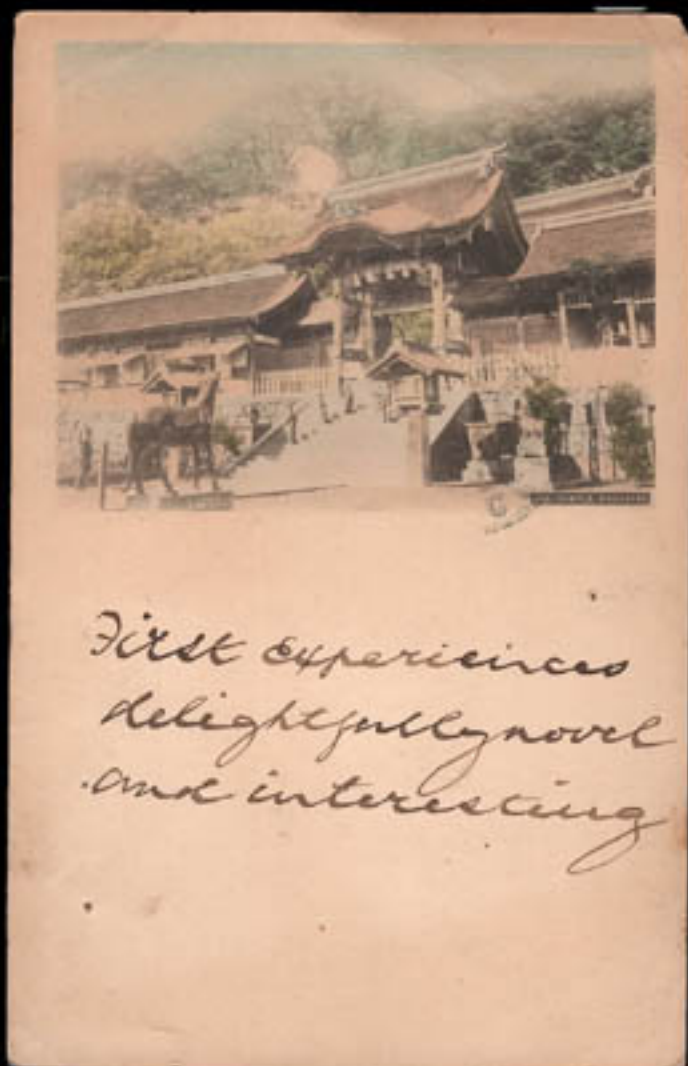 First Experiences
delightfully novel
and interesting